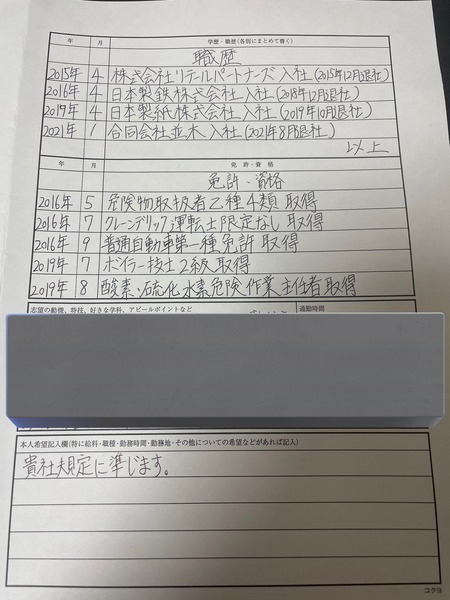 年 月 学歴・職歴(各別にまとめて書く)
職歴
2015年 4 株式会社リテールパートナーズ 入社 (2015年12月退社)
2016年 4 日本製鉄株式会社 入社 (2018年12月退社)
2019年 4 日本製紙株式会社 入社 (2019年10月退社)
2021年 1 合同会社並木 入社 (2021年8月退社)
以上
年 月 免許・資格
免許・資格
2016年 5 危険物取扱者乙種4類 取得
2016年 7 クレーンデリック運転士限定なし 取得
2016年 9 普通自動車第一種免許 取得
2019年 7 ボイラー技士2級 取得
2019年 8 酸素・硫化水素危険作業主任者 取得
志望の動機、特技、好きな学科、アピールポイントなど 通勤時間
本人希望記入欄(特に給料・職種・勤務時間・勤務地・その他についての希望などがあれば記入)
貴社規定に準じます。
コクヨ